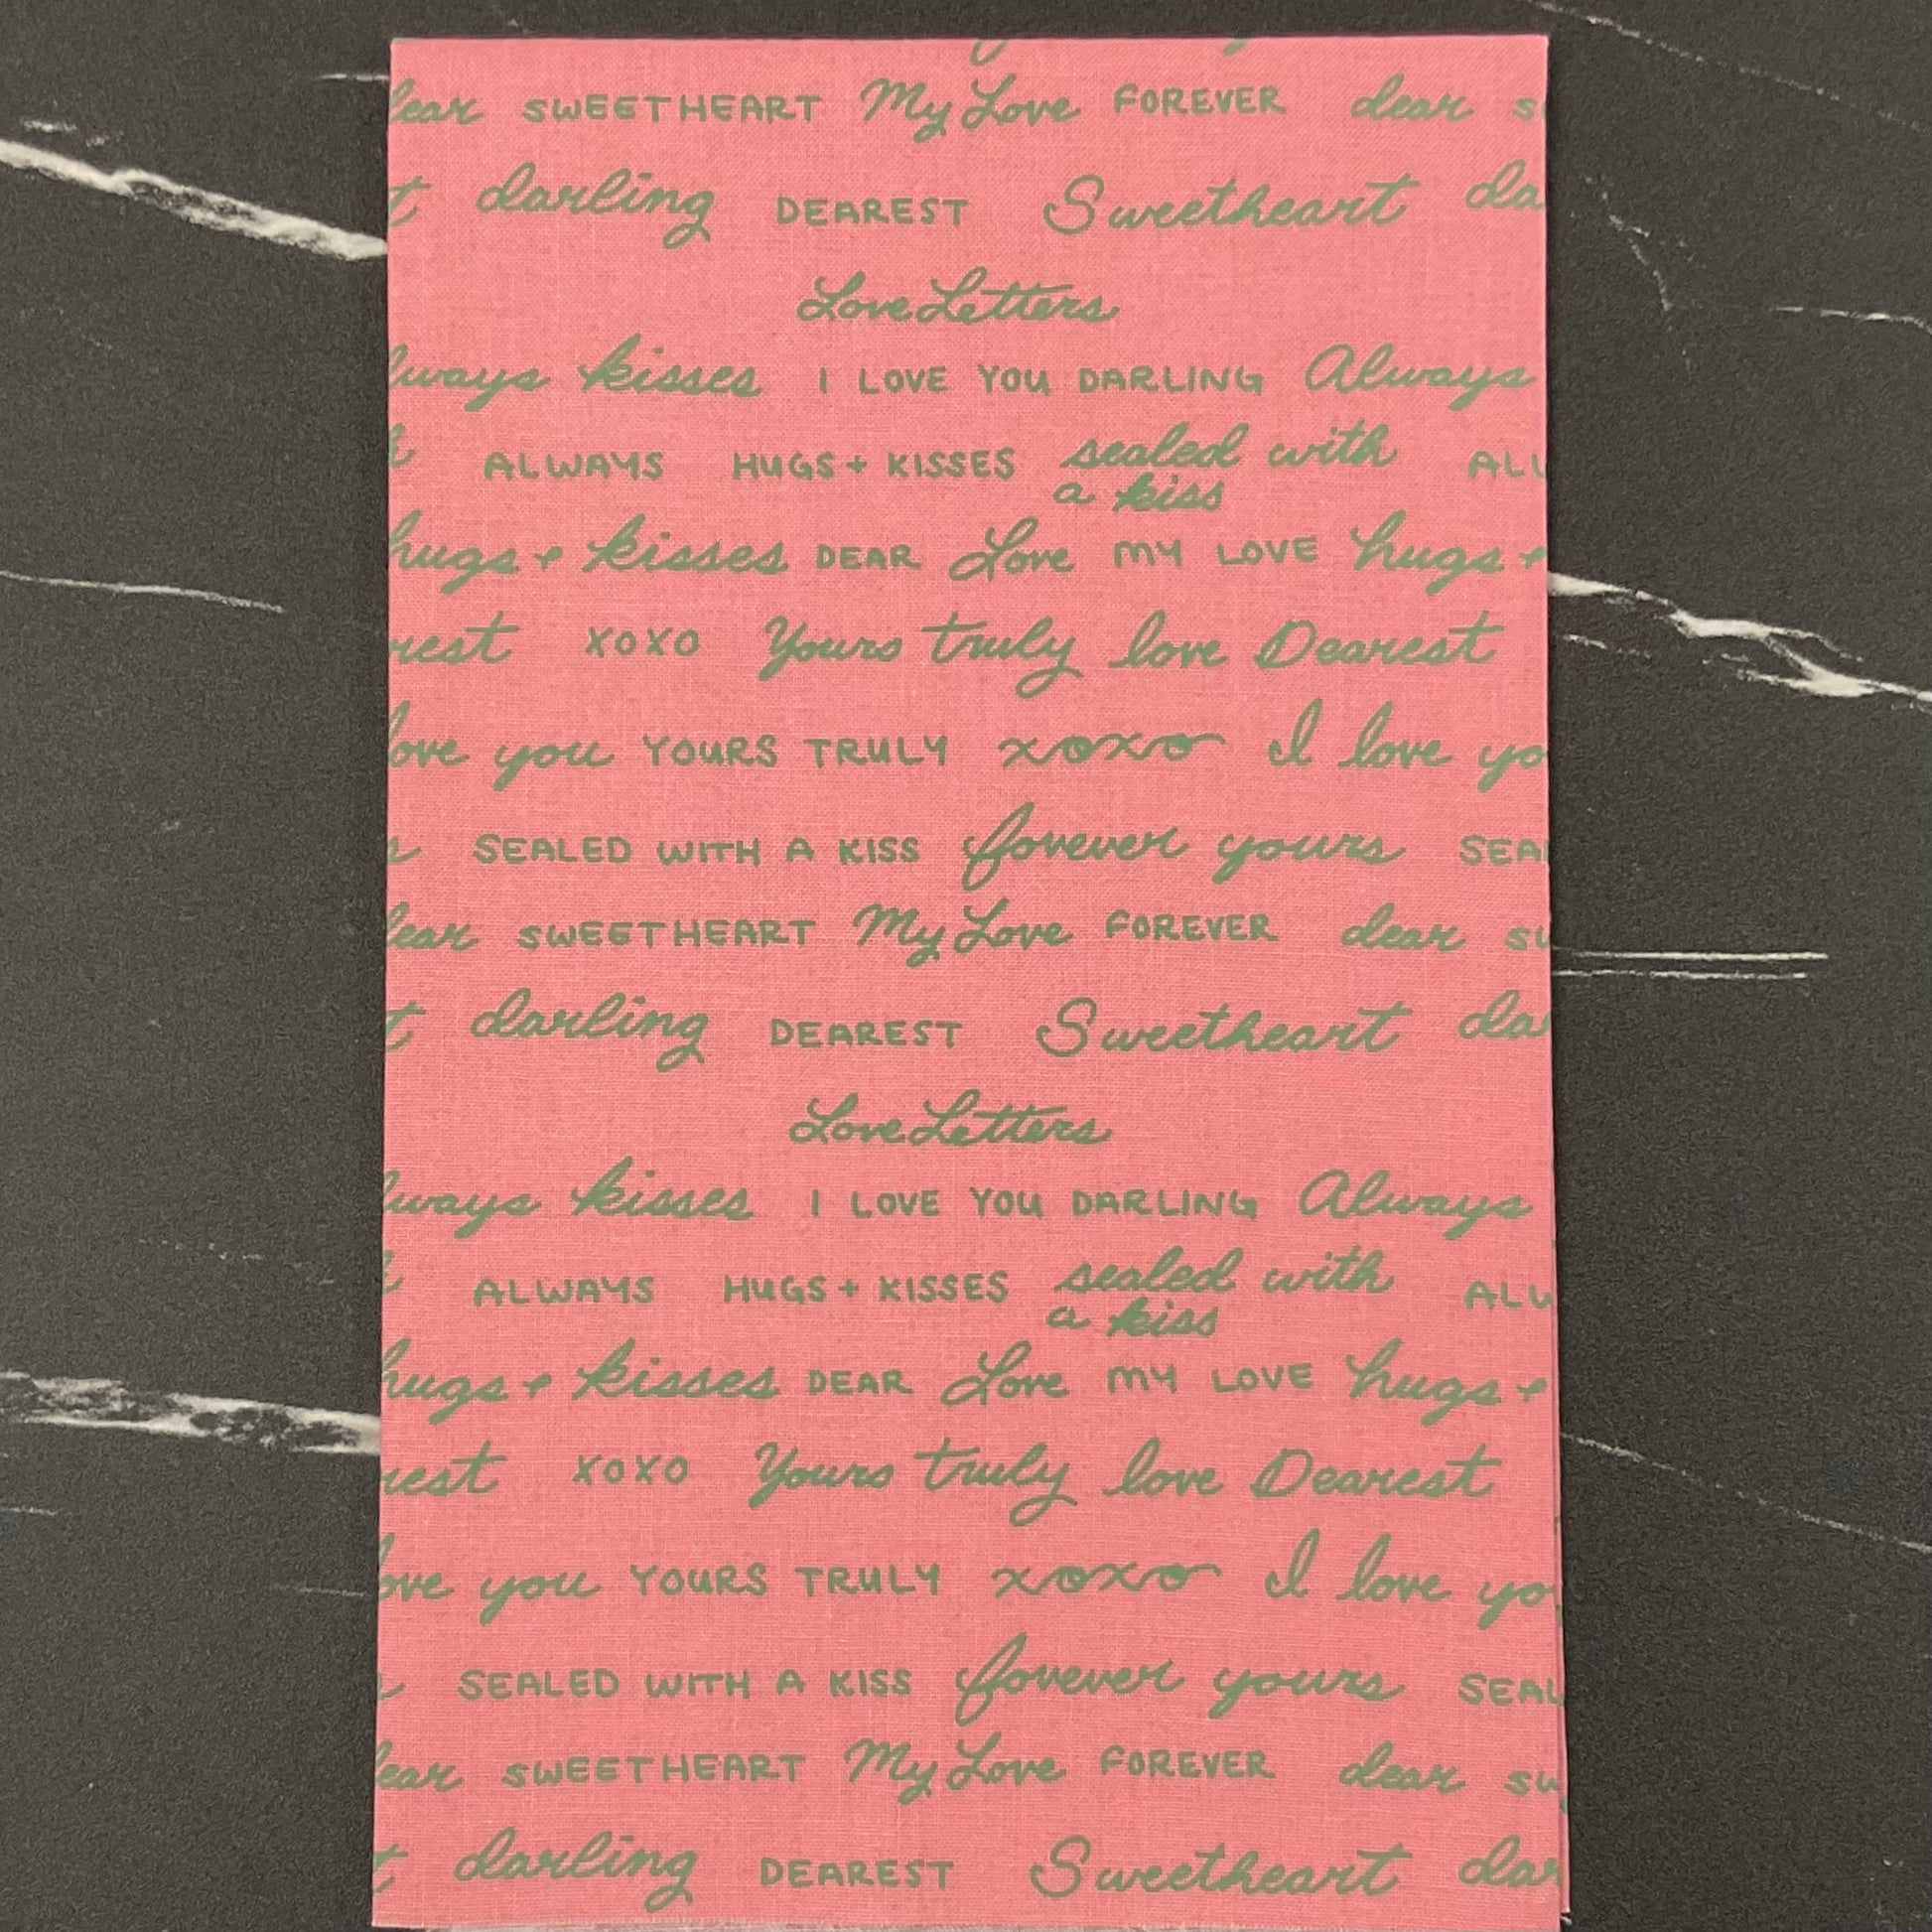 SWEETHEART My Love FOREVER dear
darling DEAREST Sweetheart
Love Letters
kisses I LOVE YOU DARLING Always
ALWAYS HUGS + KISSES sealed with
a kiss
hugs + kisses DEAR Love MY LOVE hugs +
XOXO Yours truly love Dearest
you YOURS TRULY xoxo I love
SEALED WITH A KISS forever yours
SWEETHEART My Love FOREVER dear
darling DEAREST Sweetheart
Love Letters
kisses I LOVE YOU DARLING Always
ALWAYS HUGS + KISSES sealed with
a kiss
hugs + kisses DEAR Love MY LOVE hugs +
XOXO Yours truly love Dearest
you YOURS TRULY xoxo I love
SEALED WITH A KISS forever yours
SWEETHEART My Love FOREVER dear
darling DEAREST Sweetheart